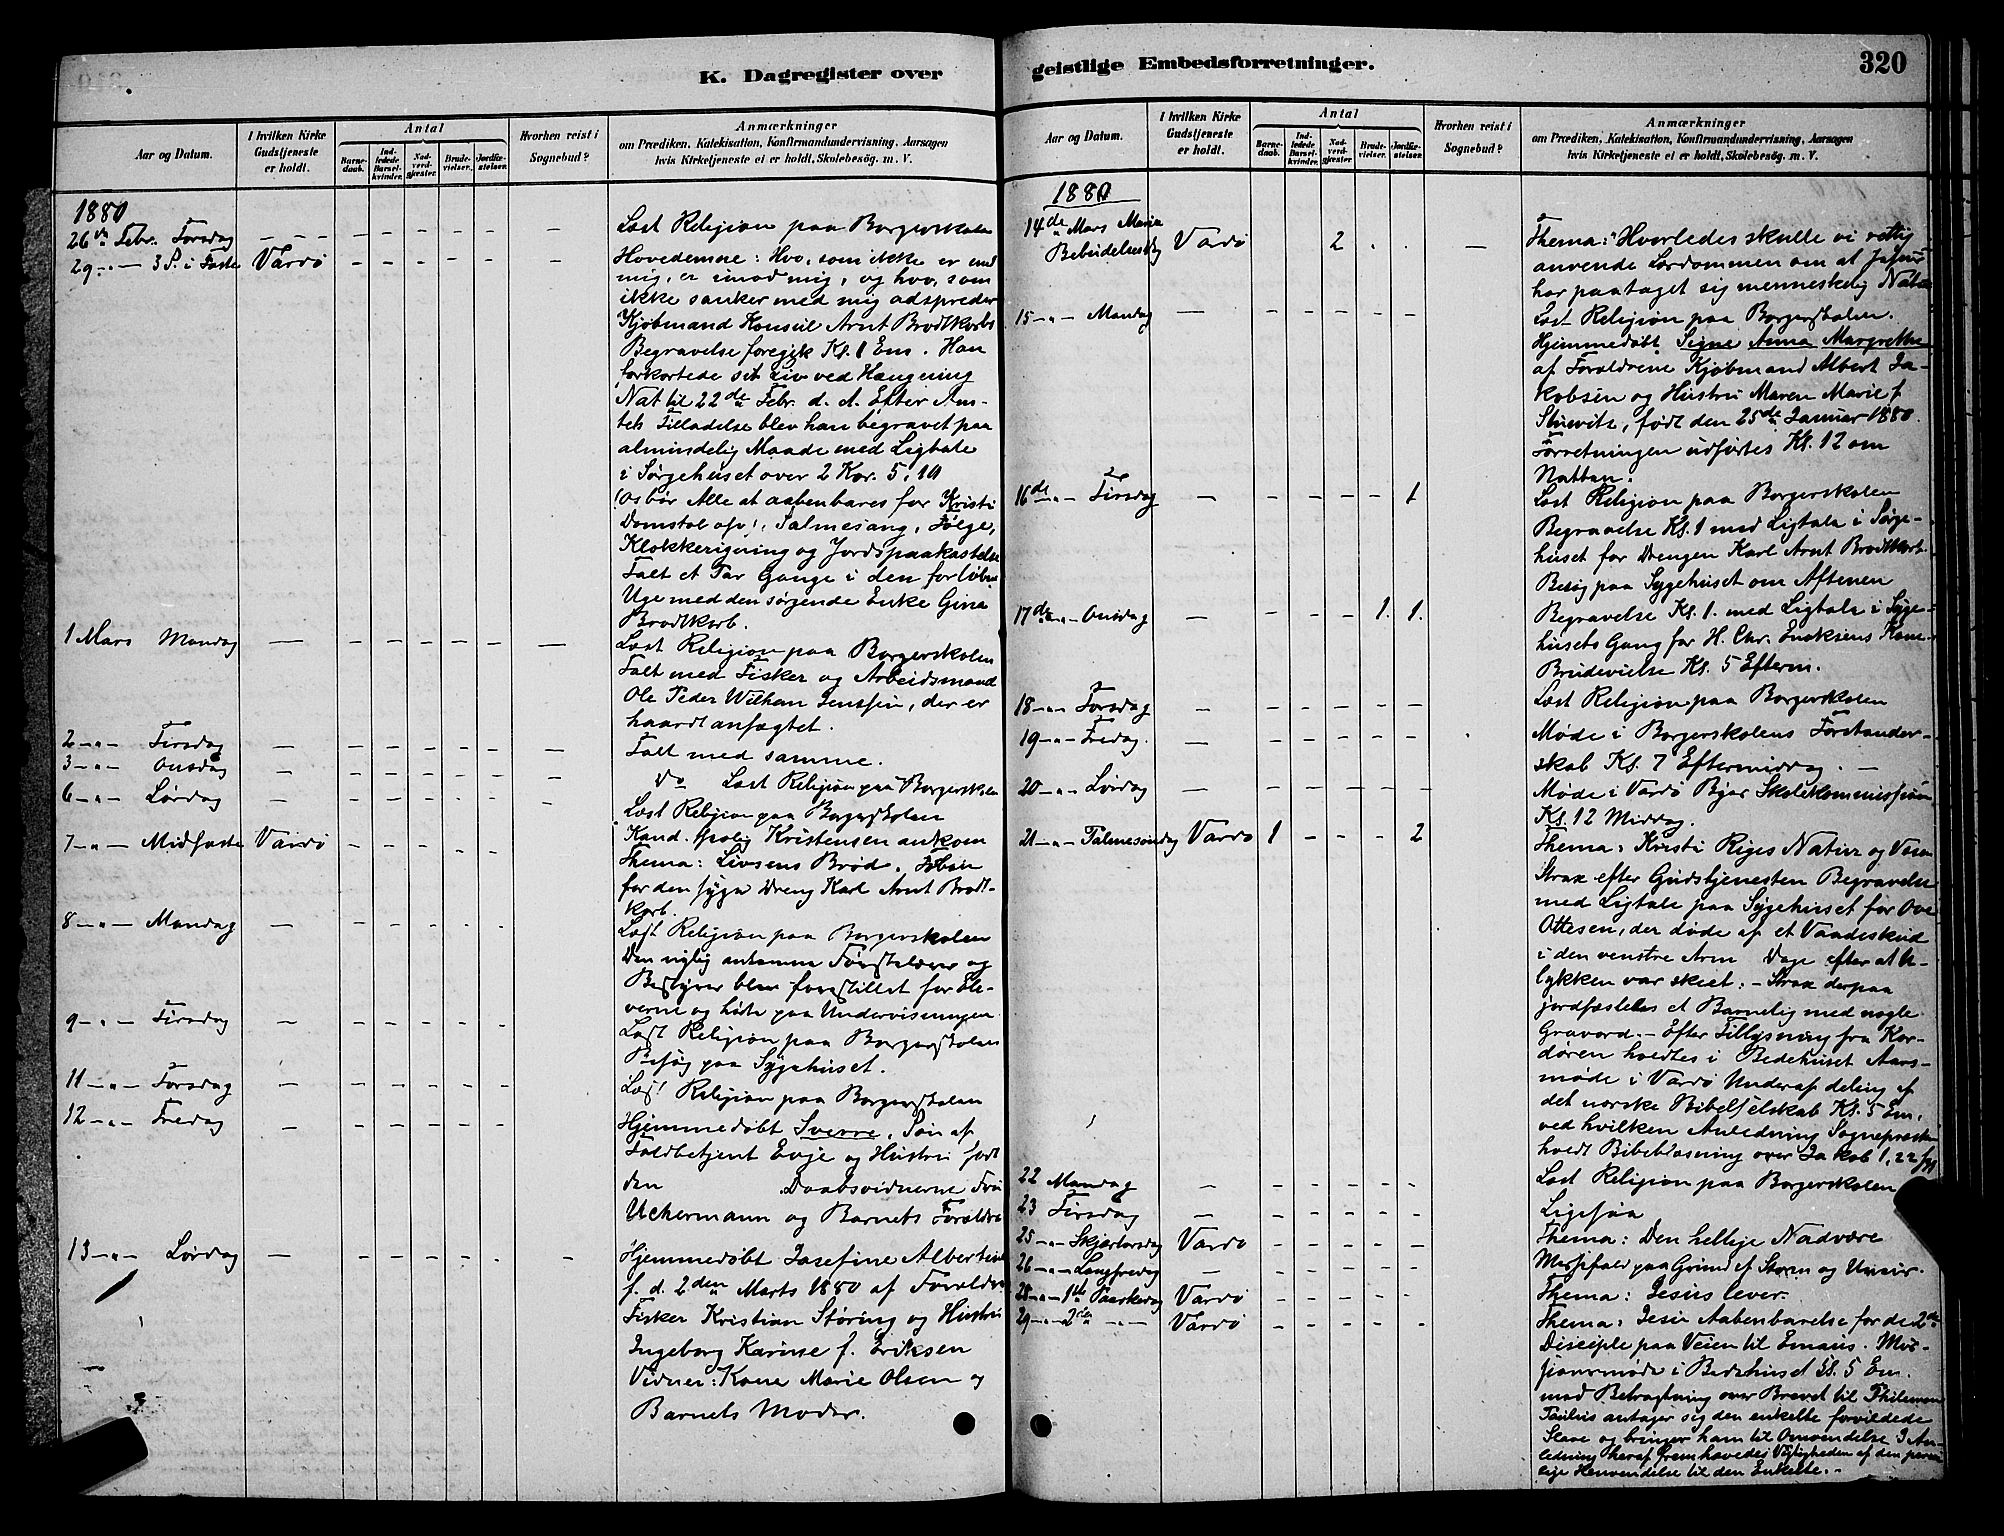 K. Dagregister over
Aar og Datum.
I hvilken Kirke Gudstjeneste er holdt.
Antal
Barnedaab.
Indledede Barselkvinder.
Nadverdgjæster.
Brudevielser.
Jordfæstelser.
Hvorhen reist i Sognebud?
Anmærkninger
om Prædiken, Katekisation, Konfirmandundervisning, Aarsagen
hvis Kirketjeneste ei er holdt, Skolebesøg. m. V.
1880
26de Febr. Torsdag – – – Læst Religion paa Borgerskolen
29 – " – 3 S. i Faste Vardö – – – – – – Hovedemne: Hvo, som ikke er med
mig, er imod mig, og hvo, som
ikke sanker med mig adspreder
Kjøbmand Konsul Arnt Brodtkorbs
Begravelse foregik Kl. 1 Em. Han
forkortede sit Liv ved Hængning
Nat til 22de Febr. d. A. Efter Am-
tets Tilladelse blev han begravet paa
almindelig Maade med Ligtale
i Sørgehuset over 2 Kor. 5, 10
(Os bør Alle at aabenbares for Kristi
Domstol osv), Salmesang, Følge,
Klokkerigning og Jordspaakastelse
Talt et Par Gange i den forløbne
Uge med den sørgende Enke Gina
Brodtkorb.
1 Mars Mandag – – – – – – – Læst Religion paa Borgerskolen
Talt med Fisker og Arbeidsmand
Ole Peder Wilhan Jenssen, der er
haardt anfægtet.
2 – " – Tirsdag – – – – – – – Talt med samme.
3 – " – Onsdag – – – – – – – Do Læst Religion paa Borgerskolen
6 – " – Lørdag – – – – – – – Læst Religion paa Borgerskolen
Kand. theolig Kristensen ankom
7 – " – Midfaste Vardö – – – – – Thema: Livsens Brød. Forbøn
for den syge Dreng Karl Arnt Brodt-
korb.
8 – " – Mandag – – – – – – Læst Religion paa Borgerskolen
Den nylig ankomne Førstelærer og
Bestyrer blev forestillet for Ele-
verne og hørte paa Undervisningen
9 – " – Tirsdag – – – – – – Læst Religion paa Borgerskolen
Besøg paa Sygehuset.
11 – " – Torsdag – – – – – – Læst Religion paa Borgerskolen
12 – " – Fredag – – – – – – Hjemmedøbt Sverre, Søn af
Toldbetjent Evje og Hustru født
den Daabsvidnerne Fru
Uchermann og Barnets Forældre
13 – " – Lørdag – – – – – – – Hjemmedøbt Josefine Albertine
f. d. 2den Marts 1880 af Forældre
Fisker Kristian Störing og Hustru
Ingeborg Karine f. Eriksen
Vidner: Kone Marie Olsen og
Barnets Moder.
geistlige Embedsforretninger.
320
Aar og Datum.
I hvilken Kirke Gudstjeneste er holdt.
Antal
Barnedaab.
Indledede Barselkvinder.
Nadverdgjæster.
Brudevielser.
Jordfæstelser.
Hvorhen reist i Sognebud?
Anmærkninger
om Prædiken, Katekisation, Konfirmandundervisning, Aarsagen
hvis Kirketjeneste ei er holdt, Skolebesög. m. V.
1880
14de Mars Maria
Bebudelsesdg Vardö 2 . . – Thema: Hvorledes skulle vi rettig
anvende Lærdommen om at Jesus
har paataget sig menneskelig Natur
15 – " – Mandag – – – – – – Læst Religion paa Borgerskolen.
Hjemmedøbt Signe Anna Margrethe
af Forældrene Kjøbmand Albert Ja-
kobsen og Hustru Maren Marie f.
født den 25de Januar 1880.
Forretningen udførtes Kl. 12 om
Natten.
16de – " – Tirsdag – – – – – 1 Læst Religion paa Borgerskolen
Begravelse Kl. 1 med Ligtale i Sørge-
huset for Drengen Karl Arnt Brodtkorb.
Besøg paa Sygehuset om Aftenen
17de – " – Onsdag – – – – 1. 1. Begravelse Kl. 1. med Ligtale i Syge-
husets Gang for H. Chr. Kone
Brudevielse Kl. 5 Efterm.
18 – " – Torsdag – – – – – – Læst Religion paa Borgerskolen
19 – " – Fredag. – – – – – – Møde i Borgerskolens Forstander-
skab Kl. 7 Eftermiddag. –
20 – " – Lørdag – – – – – – Møde i Vardö Byes Skolekommission
Kl. 12 Middag.
21 – " – Palmesöndag Vardö 1 – – – 2 Thema: Kristi Riges Natur og Væsen
Strax efter Gudstjenesten Begravelse
med Ligtale paa Sygehuset for Ove
Ottesen, der døde af et Vaadeskud
i den venstre Arm Dage efter at U-
lykken var skeet: – Strax derpaa
jordfæstedes et Barnelig med nogle
Gravord. – Efter Tillysning fra Kor-
døren holdtes i Bedehuset Aars-
møde i Vardö Underafdeling af
det norske Bibelselskab Kl. 5 Em.
ved hvilken Anledning Sognepræsten
holdt Bibellæsning over Jakob 1, 22 flg
22 Mandag – – – – – – Læst Religion paa Borgerskolen
23 Tirsdag – – – – – – Ligesaa
25 – " – Skjærtorsdag Vardö – – – – – Thema: Den hellige Nadvære
26 – " – Langfredag – – – – – – Messefald paa Grund af Storm og Uveir.
28 – " – 1ste Paaskedag Vardö – – – – – Thema: Jesus lever.
29 – " – 2den – " – Vardö – – – – – Thema: Jesu Aabenbarelse for de 2de
Disciple paa Veien til Emaus. Mis-
sionsmøde i Bedehuset Kl. 5 Em.
med Betragtning over Brevet til Philemon
Paulus antager sig den enkelte forvildede
Slave og bringer ham til Omvendelse I An-
ledning heraf fremhævedes Vigtigheden af den person-
lige Henvendelse til den Enkelte. –